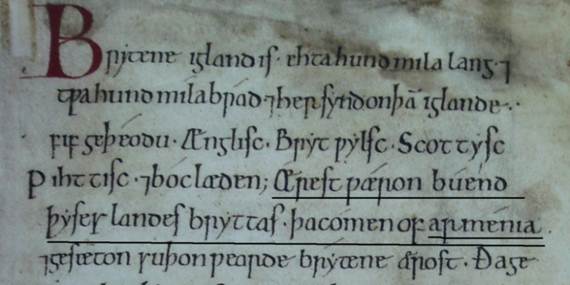 Brytene igland is · ehta hund mila lang · ⁊
tƿa hund mila brad · ⁊ her syndon þā iglande ·.·
fif geþeodu · Ænglisc · Brytƿylsc · Scottysc
Pihttisc · ⁊ boclæden ; Ærest ƿæron buend
þyses landes bryttas · þa comen of armenia ·
⁊ gesæton suþonƿearde brytene ærost · Ða ge